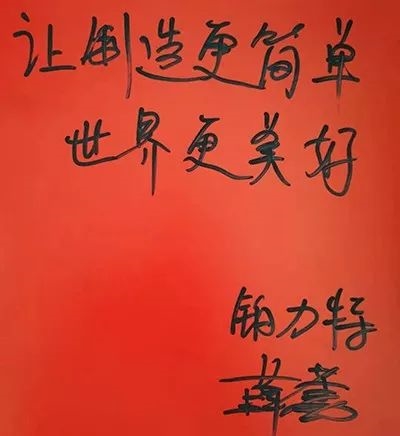 让制造更简单
世界更美好
铂力特
薛蕾